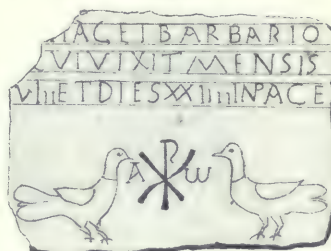 IACETBARBARIO
QVIVIXITMENSIS
VIIIETDIESXXIIIIINPACE
A ☧ ω